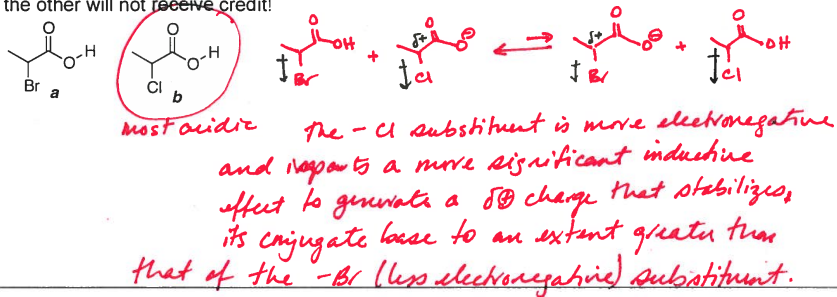 the other will not receive credit!
O
O-H
Br
a
O
O-H
Cl
b
O
OH
Br
+
δ+
O
O⊖
Cl
δ+
O
O⊖
Br
+
O
OH
Cl
most acidic
The -Cl substituent is more electronegative
and imparts a more significant inductive
effect to generate a δ⊕ charge that stabilizes
its conjugate base to an extent greater than
that of the -Br (less electronegative) substituent.